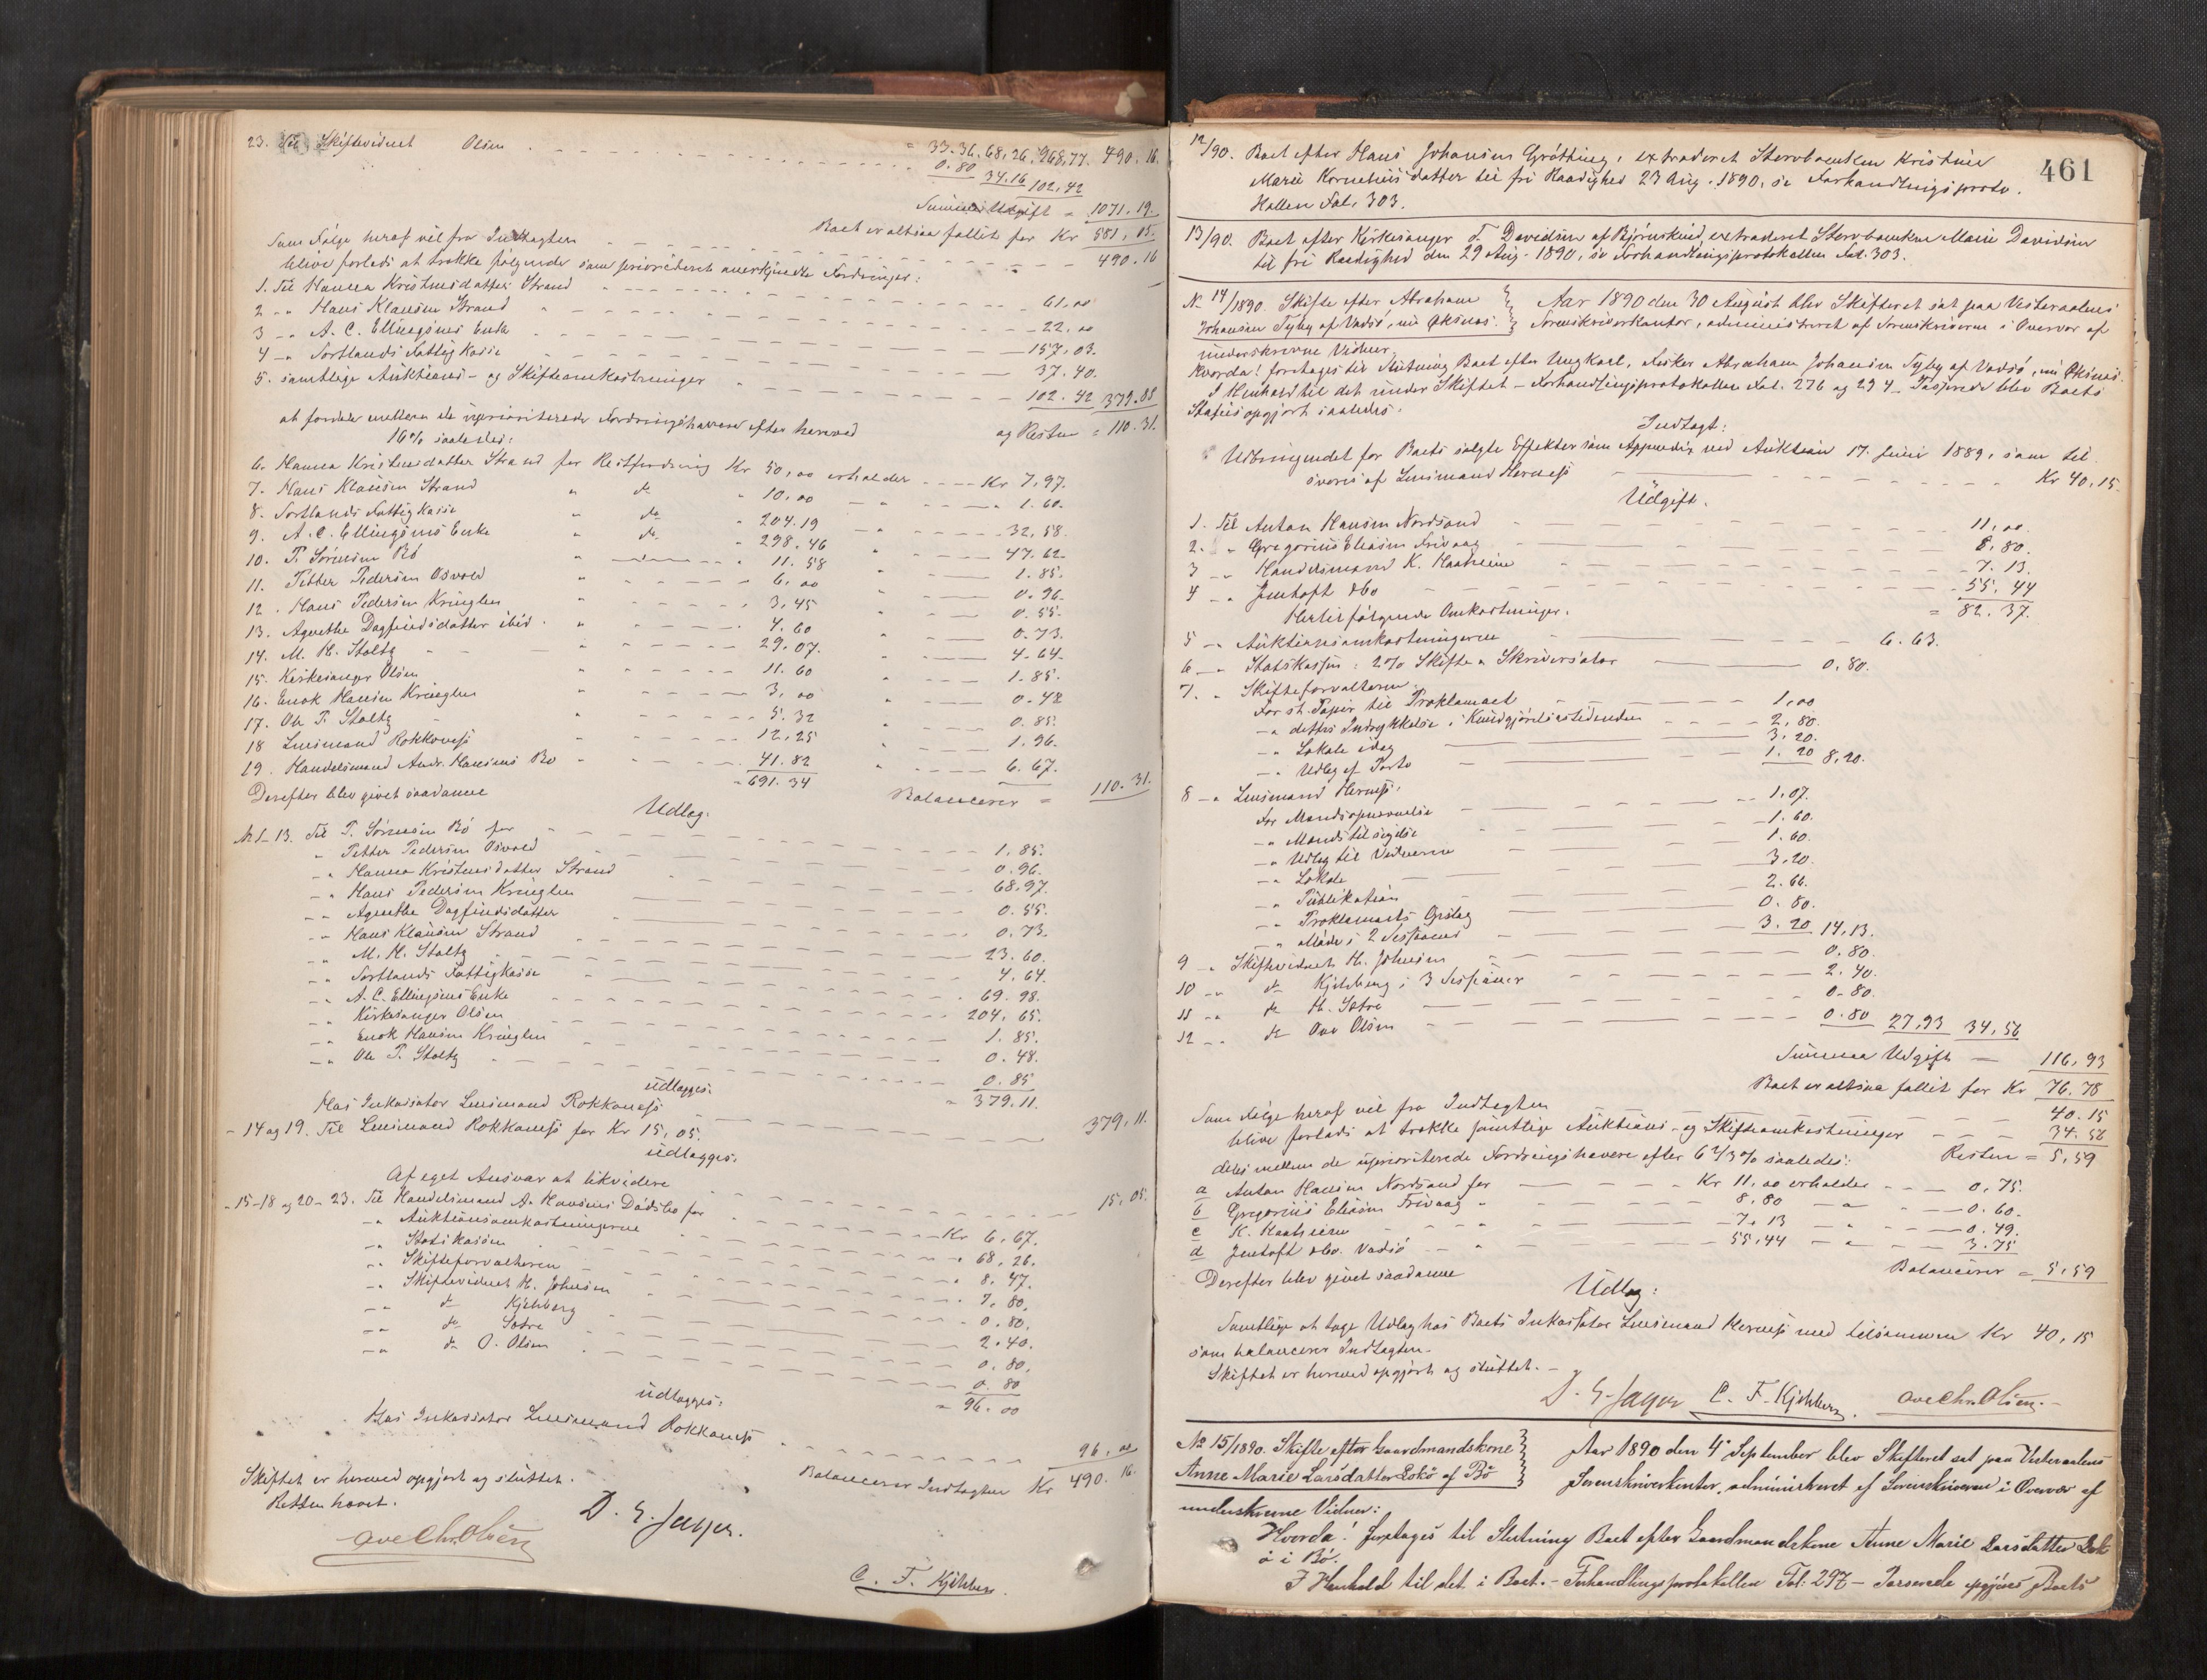 23. Til Skiftevidnet Olsen - - - " 33.36. 68,26. 968,77. 490.16.
0.80 34.16 102.42
Summa Udgift = 1071.19.
Boet er altsaa fallit for Kr 581,05.
Som Følge heraf vil fra Indtagten - - - 490.16
blive forlods at trække følgende som prioriteret anerkjendte Fordringer:
1. Til Hanna Kristensdatter Strand - - - 61,00
2 -"- Hans Klausen Strand - - - 22,00
3 -"- A. C. Ellingsens Enke - - - 157,03.
4 -"- Sortlands Fattigkasse - - - 37.40.
5. samtlige Auktions- og Skifteomkostninger - - - 102.42 379.85
og Resten = 110.31.
at fordele mellem de uprioriterede Fordringshavere efter herved
16% saaledes:
6. Hanna Kristensdatter Strand for Restfordring Kr 50,00 erholder - - - Kr 7,97.
7. Hans Klausen Strand " do " 10,00 - " - 1.60.
8. Sortlands Fattigkasse " do " 204.19 - " - 32,58.
9. A. C. Ellingsens Enke " do " 298.46 " - 47.62.
10. P. Sørensen Bø " - - - 11.58 " - 1.85.
11. Petter Pedersen Osvold " - - - 6,00 " - 0.96.
12. Hans Pedersen Kringlen " - - - 3,45 " - 0.55.
13. Agnethe Dagfindsdatter ibid. " - - - 4.60 " - 0.73.
14. M. H. Stoltz - - - 29,07. " - 4.64.
15. Kirkesanger Olsen " - - - 11.60 " - 1.85.
16. Enok Hansen Kringlen " - - - 3,00 " - 0.48
17. Ole P. Stoltz - - - 5.32 " - 0.85.
18 Lensmand Rokkones - - - 12,25 " - 1.96.
19. Handelsmand Andr. Hansens Bo - - - 41.82 " - 6.67.
= 691.34 Balancerer = 110.31.
Derefter blev givet saadanne
Udlag.
No 1-13. Til P. Sørensen Bø for - - - 1,85.
" Petter Pedersen Osvold - - - 0.96.
-" Hanna Kristensdatter Strand - - - 68.97.
-" Hans Pedersen Kringlen - - - 0.55.
-" Agnethe Dagfindsdatter - - - 0.73.
-" Hans Klausen Strand - - - 23.60.
-" M. H. Stoltz - - - 4.64.
-" Sortlands Fattigkasse - - - 69.98.
-" A. C. Ellingsens Enke - - - 204,65.
-" Kirkesanger Olsen - - - 1.85.
-" Enok Hansen Kringlen - - - 0.48.
-" Ole P. Stoltz - - - 0.85
udlægges: = 379.11.
Hos Inkassator Lensmand Rokkones - - - 379,11.
- 14 og 19. Til Lensmand Rokkones for Kr 15,05.
udlægges:
Af eget Ansvar at likvidere - - - 15,05.
- 15-18 og 20-23. Til Handelsmand A. Hansens Dødsbo for - - - Kr 6,67.
-" Auktionsomkostningerne - - - 68,26.
" Statskassen - - - 8.47.
-" Skifteforvalteren - - - 7,80.
-" Skiftevidnet H. Johnsen - - - 0.80.
-" do Kjelsberg - - - 2.40.
-" do Sætre - - - 0.80.
-" do O. Olsen - - - 0.80
udlægges: = 96.00
Hos Inkassator Lensmand Rokkones - - - 96,00
Balancerer Indtagten Kr 490.16.
Skiftet er hermed opgjort og sluttet.
Retten hævet.
D. E. Jager.
Ove Chr. Olsen
C. F. Kjelsberg.
461
12/90. Boet efter Hans Johansen Grøtting, extraderet Stervboenken Kristine
Marie Korneliusdatter til fri Raadighed 23 Aug. 1890, se Forhandlingsproto-
kollen Fol. 303.
13/90. Boet efter Kirkesanger F. Davidsen af Bjørnskind, extraderet Stervboenken Marie Davidsen
til fri Raadighed den 29 Aug. 1890, se Forhandlingsprotokollen Fol. 303.
No 14/1890. Skifte efter Abraham Aar 1890 den 30 August blev Skifteret sat paa Vesteraalens
Johansen Tyby af Vadsø, nu Øksnes. Sorenskriverkontor, administreret af Sorenskriveren i Overvær af
underskrevne Vidner,
Hvorda! foretages til Slutning Boet efter Ungkarl, Fisker Abraham Johansen Tyby af Vadsø, nu Øksnes.
I Henhold til det under Skiftet - Forhandlingsprotokollen Fol. 276 og 294 - Passerede blev Boets
Status opgjort saaledes:
Indtagt:
Udbringendet for Boets solgte Effekter som Appendix ved Auktion 17. Juni 1889, som til-
svares af Lensmand Hernes - - - Kr 40,15.
Udgift.
1. Til Anton Hansen Nordsand - - - 11,00.
2. " Gregorius Eliasen Frivaag - - - 8,80.
3 -" Handelsmand K. Haaheim - - - 7.13.
4 -" Jentoft dbo - - - 55,44
= 82.37.
Hertil følgende Omkostninger.
5 -" Auktionsomkostningerne - - - 6.63.
6 -" Statskassen: 2% Skifte & Skriversalær - - - 0,80.
7. " Skifteforvalteren.
For st. Papir til Proklamaet - - - 1,00
-" dettes Indrykkelse i Kundgjørelsestidenden - - - 2,80.
-" Lokale idag - - - 3.20.
-" Udlæg af Porto - - - 1.20 8,20.
8 -" Lensmand Hernes:
For Mandsopnævnelse - - - 1.07.
-" Mands tilsigelse - - - 1.60.
-" Udlæg til Vidnerne - - - 1.60.
-" Lokale - - - 3,20.
-" Publikation - - - 2.66.
-" Proklamaets Opslag - - - 0.80.
-" Møde i 2 Sessioner - - - 3.20 14,13.
9 -" Skiftevidnet H. Johnsen - - - 0.80.
10 -" do Kjelsberg i 3 Sessioner - - - 2.40.
11 -" do H. Sætre - - - 0.80.
12 -" do Ove Olsen - - - 0.80 27,93 34,56
Summa Udgift - 116,93
Boet er altsaa fallit for Kr 76.78
Som Følge heraf vil fra Indtagten - - - 40.15
blive forlods at trække samtlige Auktions- og Skifteomkostninger - - - 34.56
Resten = 5,59
deles mellem de uprioriterede Fordringshavere efter 6 2/3 % saaledes:
a Anton Hansen Nordsand for - - - Kr 11,00 erholder - - - 0,75.
b Gregorius Eliasen Frivaag " - - - 8,80 - " - 0.60.
c K. Haaheim - - - 7.13 - " - 0.49.
d Jentoft dbo. Vadsø - - - 55,44 - " - 3.75
Balancerer = 5,59
Derefter blev givet saadanne
Udlæg:
Samtlige at tage Udlæg hos Boets Inkassator Lensmand Hernes med tilsammen Kr 40,15
som balancerer Indtagten.
Skiftet er hermed opgjort og sluttet. -
D. E. Jager C. F. Kjelsberg. Ove Chr. Olsen. -
No 15/1890. Skifte efter Gaardmandskone Aar 1890 den 4de September blev Skifteret sat paa Vesteraalens
Anne Marie Larsdatter Lokø af Bø Sorenskriverkontor, administreret af Sorenskriveren i Overvær af
underskrevne Vidner:
Hvorda! foretages til Slutning Boet efter Gaardmandskone Anne Marie Larsdatter Lok
ø i Bø.
I Henhold til det i Boet. - Forhandlingsprotokollen Fol: 297 - Passerede opgjøres Boets